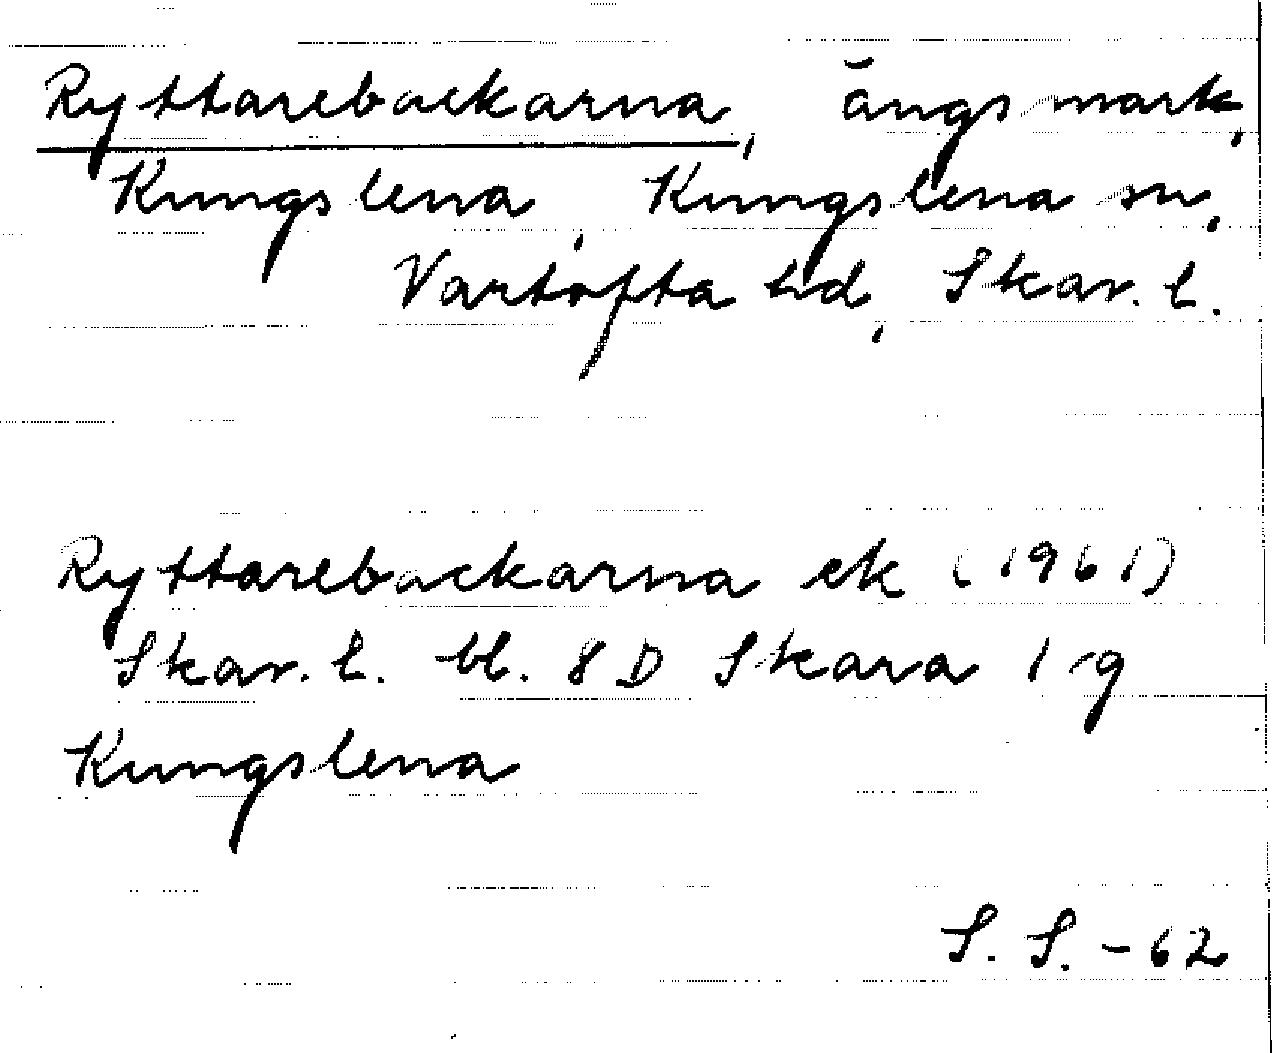 Ryttarebackarna, ängsmark,
Kungslena, Kungslena sn,
Vartofta hd, Skar. l.
Ryttarebackarna ek (1961)
Skar. l. bl. 8 D Skara 1 g
Kungslena
S. S. - 62